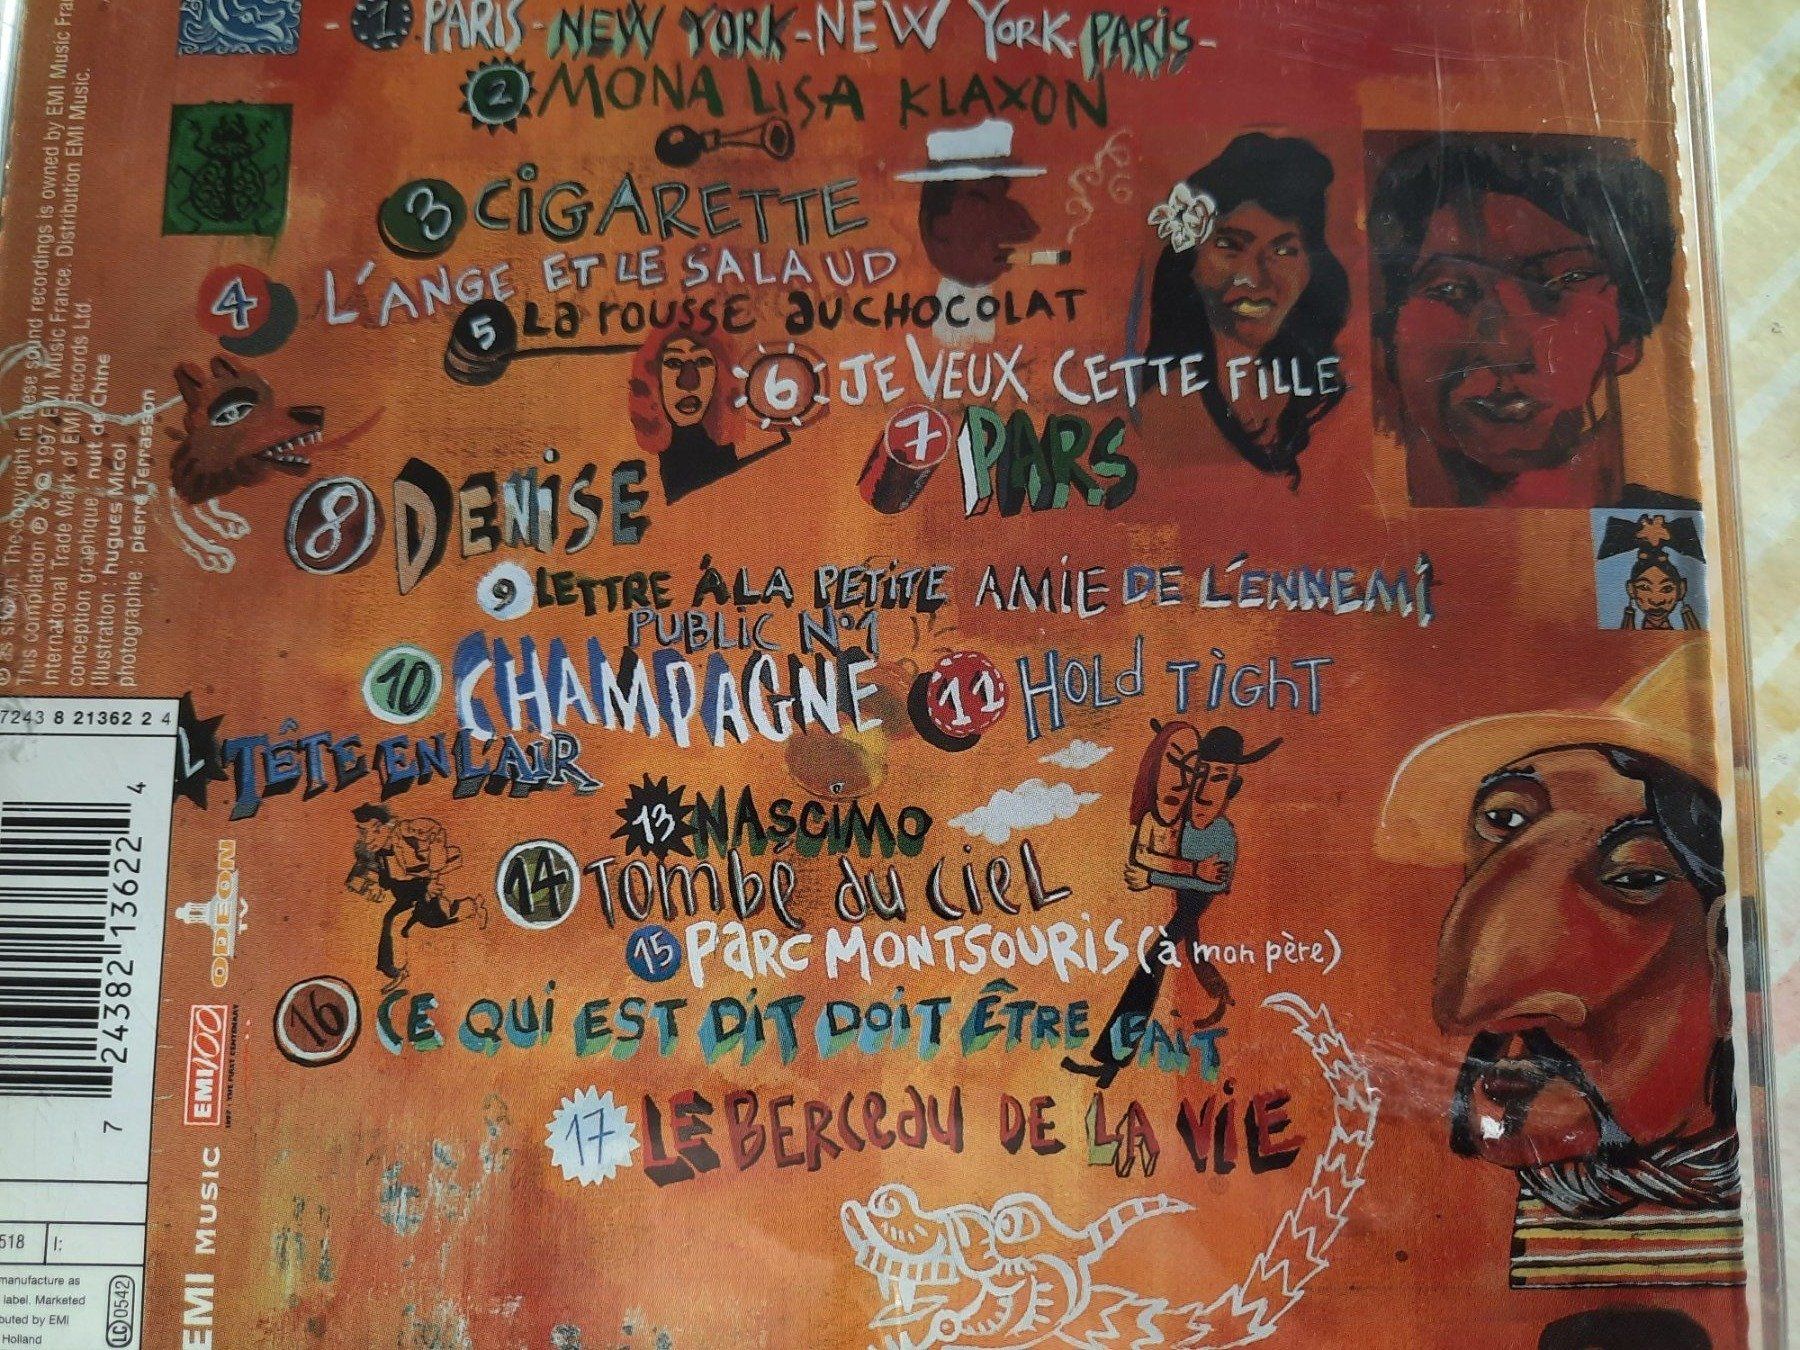 - 1 PARIS - NEW YORK - NEW YORK - PARIS -
2 MONA LISA KLAXON
3 CIGARETTE
4 L'ANGE ET LE SALAUD
5 La rousse au CHOCOLAT
6 JE VEUX CETTE FILLE
7 PARS
8 DENISE
9 LETTRE À LA PETITE AMIE DE L'ENNEMI
PUBLIC N°1
10 CHAMPAGNE
11 HOLD TIGHT
TÊTE EN L'AIR
13 NASCIMO
14 Tombé du ciel
15 PARC MONTSOURIS (à mon père)
16 CE QUI EST DIT DOIT ÊTRE FAIT
17 LE BERCEAU DE LA VIE
as shown. The copyright in these sound recordings is owned by EMI Music
This compilation ℗ & © 1997 EMI Music France. Distribution EMI Music.
International Trade Mark of EMI Records Ltd.
conception graphique : nuit de Chine
Illustration : hugues Micol
photographie : pierre Terrasson
7243 8 21362 2 4
7 24382 13622 4
ODEON
EMI 100
1997 - THE FIRST CENTENARY
EMI MUSIC
518 I:
manufacture as
label. Marketed
buted by EMI
Holland
LC 0542